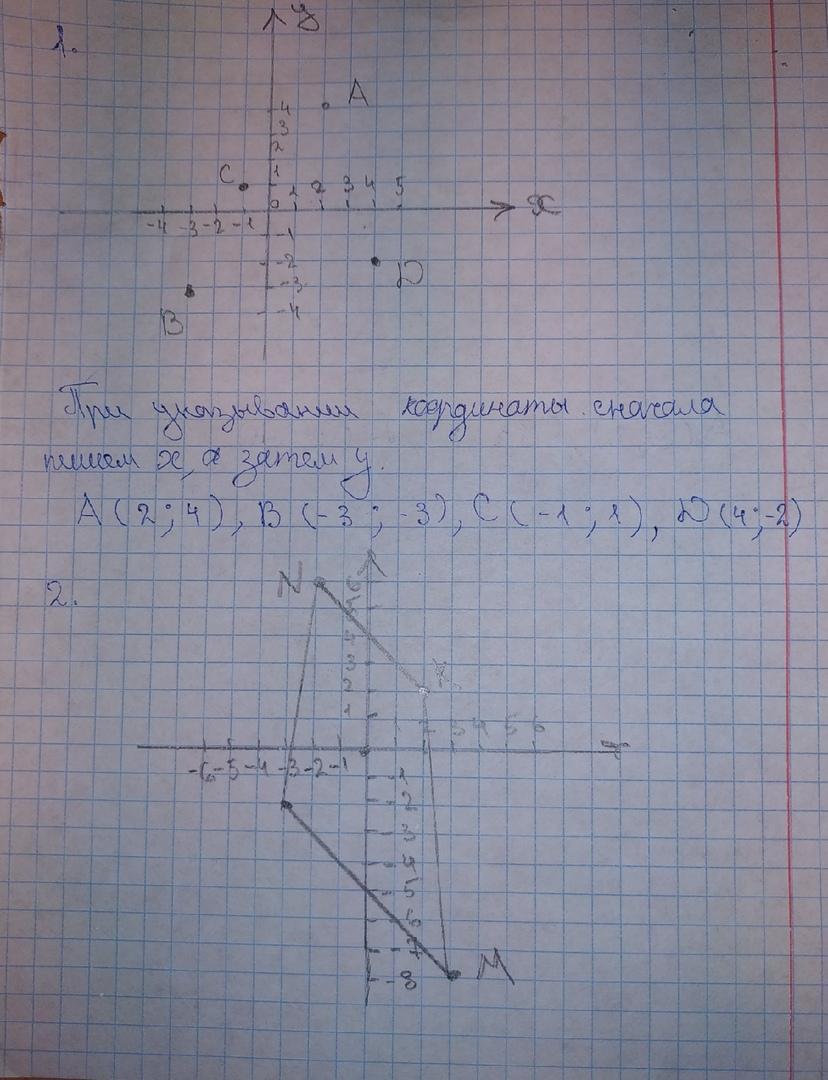 1.
y
A
4
3
2
C 1
0 1 2 3 4 5 x
-4 -3 -2 -1
-1
-2 D
-3
B -4
При указывании координаты сначала
пишем x, а затем y.
A (2; 4), B (-3; -3), C (-1; 1), D (4; -2)
2.
N 6
5
4
3
2
1 1 2 3 4 5 6
-6 -5 -4 -3 -2 -1
-1
-2
-3
-4
-5
-6
-7
M
-8